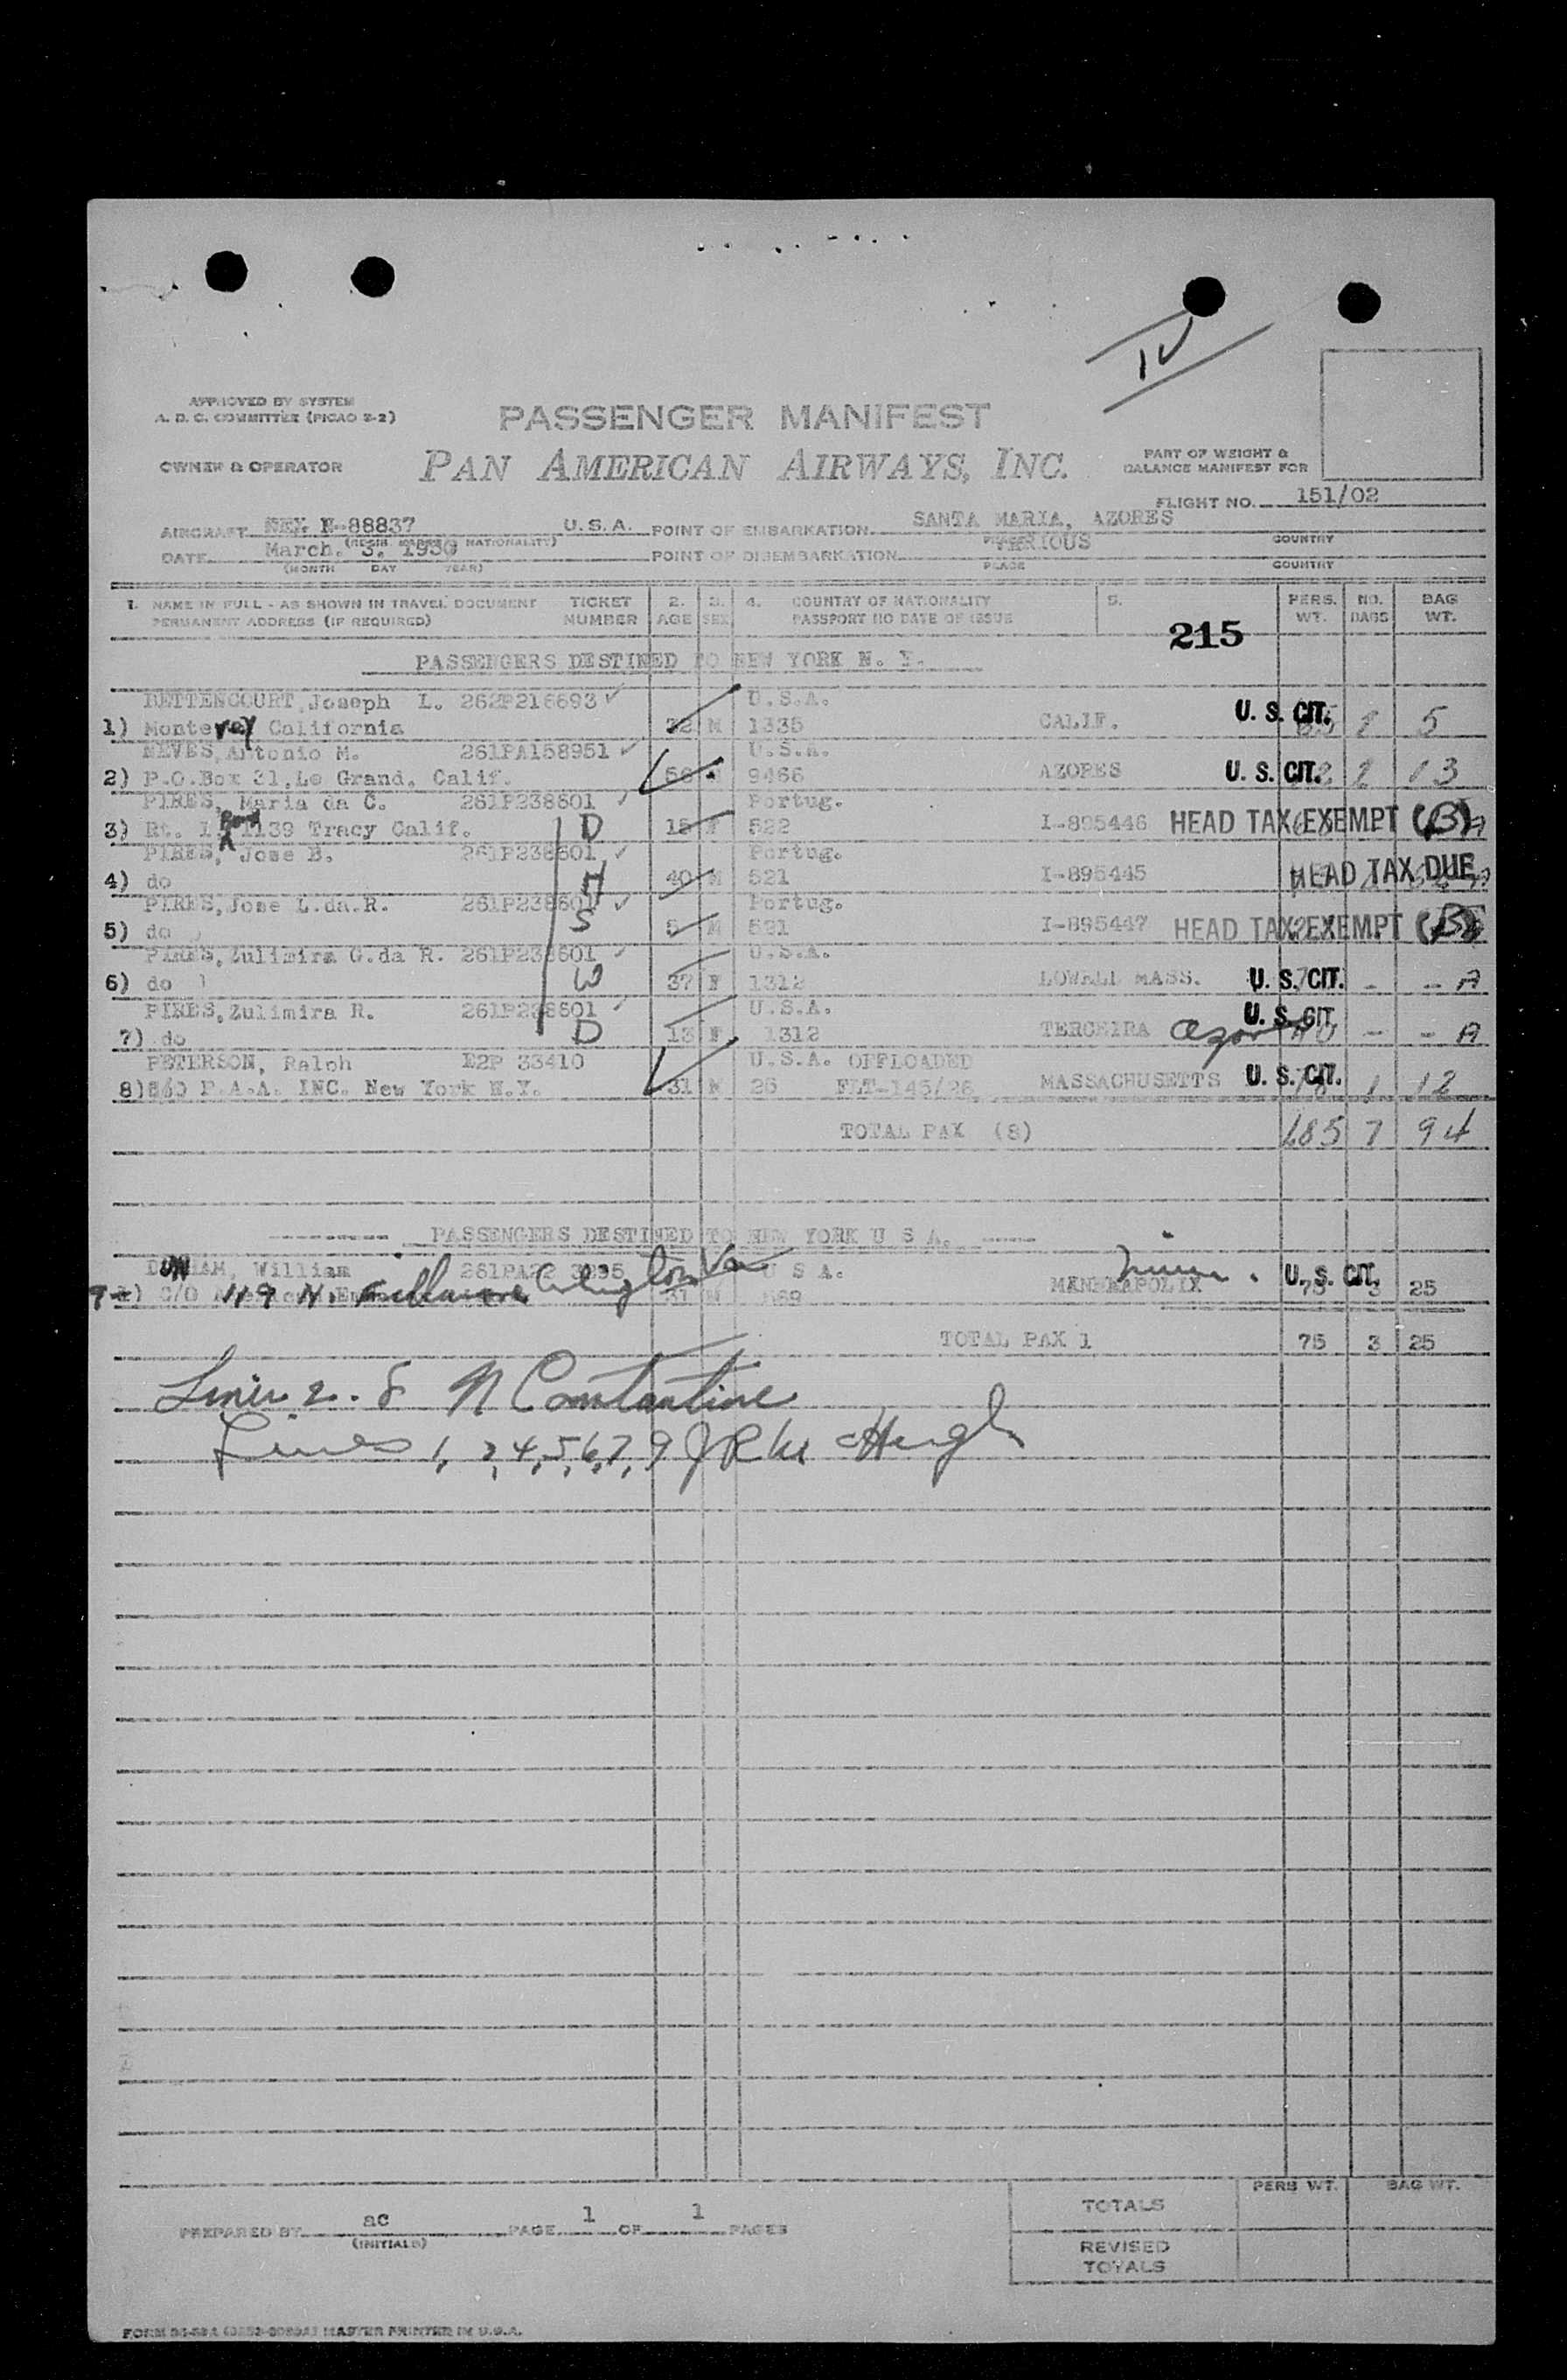 IV
APPROVED BY SYSTEM
A. D. C. COMMITTEE (PICAO 2-2)
PASSENGER MANIFEST
OWNER & OPERATOR
PAN AMERICAN AIRWAYS, INC.
PART OF WEIGHT &
BALANCE MANIFEST FOR
FLIGHT NO. 151/02
AIRCRAFT N-88837 U.S.A. POINT OF EMBARKATION SANTA MARIA, AZORES
(REGIS. MARKS NATIONALITY) COUNTRY
DATE March. 3. 1950 POINT OF DISEMBARKATION VERIOUS
(MONTH DAY YEAR) PLACE COUNTRY
1. NAME IN FULL - AS SHOWN IN TRAVEL DOCUMENT TICKET 2. 3. 4. COUNTRY OF NATIONALITY 5. PERS. NO. BAG
PERMANENT ADDRESS (IF REQUIRED) NUMBER AGE SEX PASSPORT NO DATE OF ISSUE WT. BAGS WT.
215
PASSENGERS DESTINED TO NEW YORK N. Y.
BETTENCOURT, Joseph L. 262P216693 U.S.A.
1) Monterey California M 1335 CALIF. U. S. CIT. 5
NEVES, Antonio M. 261PA158951 U.S.A.
2) P.O.Box 31, Le Grand, Calif. 56 9466 AZORES U. S. CIT. 13
PIRES, Maria da C. 261P238601 Portug.
3) Rt. 1, 1139 Tracy Calif. D 15 F 522 I-895446 HEAD TAX EXEMPT (B)
PIRES, Jose B. 261P238601 Portug.
4) do H 40 M 521 I-895445 HEAD TAX DUE
PIRES, Jose L.da.R. 261P238601 Portug.
5) do S M 521 I-895447 HEAD TAX EXEMPT (B)
PIRES, Zulimira G.da R. 261P238601 U.S.A.
6) do W 37 F 1312 LOWALL MASS. U. S. CIT. - - A
PIRES, Zulimira R. 261P238601 U.S.A. U. S. CIT.
7) do D 13 F 1312 TERCEIRA Azores - - A
PETERSON, Ralph E2P 33410 U.S.A. OFFLOADED
8) P.A.A. INC. New York N.Y. 31 M 25 FLT-145/26 MASSACHUSETTS U. S. CIT. 1 12
TOTAL PAX (8) 485 7 94
PASSENGERS DESTINED TO NEW YORK U S A.
DUNHAM, William U S A. Minn.
9 C/O 119 N. Fillmore Arlington Va 37 M MENNEAPOLIX U. S. CIT. 75 3 25
TOTAL PAX 1 75 3 25
Lines 2. 8 N Constantine
Lines 1, 3, 4, 5, 6, 7, 9 J R Mc Hugh
PREPARED BY ac PAGE 1 OF 1 PAGES
(INITIALS)
PERS WT. BAG WT.
TOTALS
REVISED
TOTALS
MASTER PRINTER IN U.S.A.